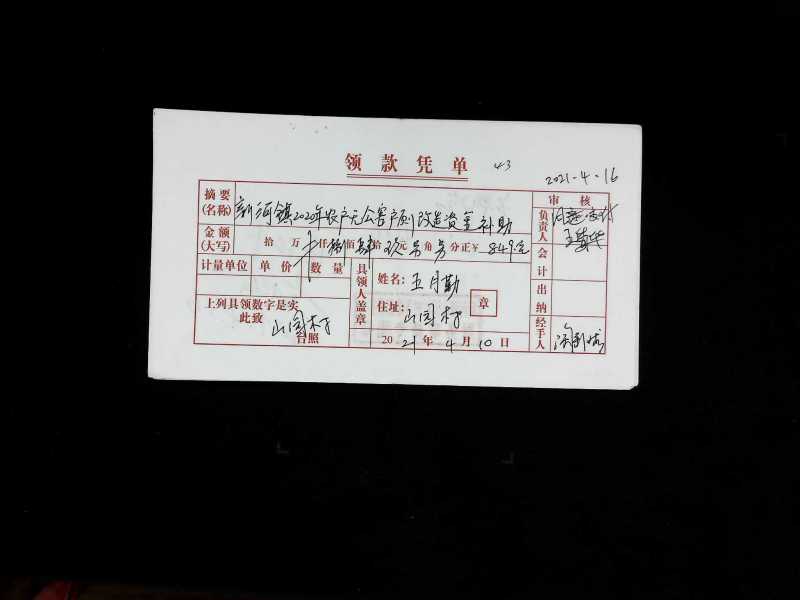 领款凭单 43
2021-4-16
摘要(名称) 新河镇2020年农户无公害户厕改造资金补助
审核
负责人 同意支付
金额(大写) 拾万仟捌佰肆拾玖元另角另分正¥849元
计量单位 单价 数量
具领人盖章
姓名：王月勤
住址：山园村
章
会计
出纳
上列具领数字是实
此致
山园村
台照
2021年4月10日
经手人